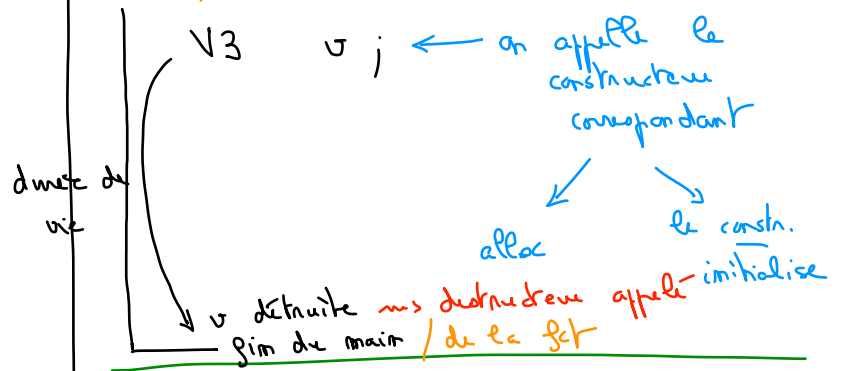 V3 v ; ← on appelle le
constructeur
correspondant
durée de
vie
alloc
le constr.
initialise
v détruite ⇝ destructeur appelé
fin du main / de la fct